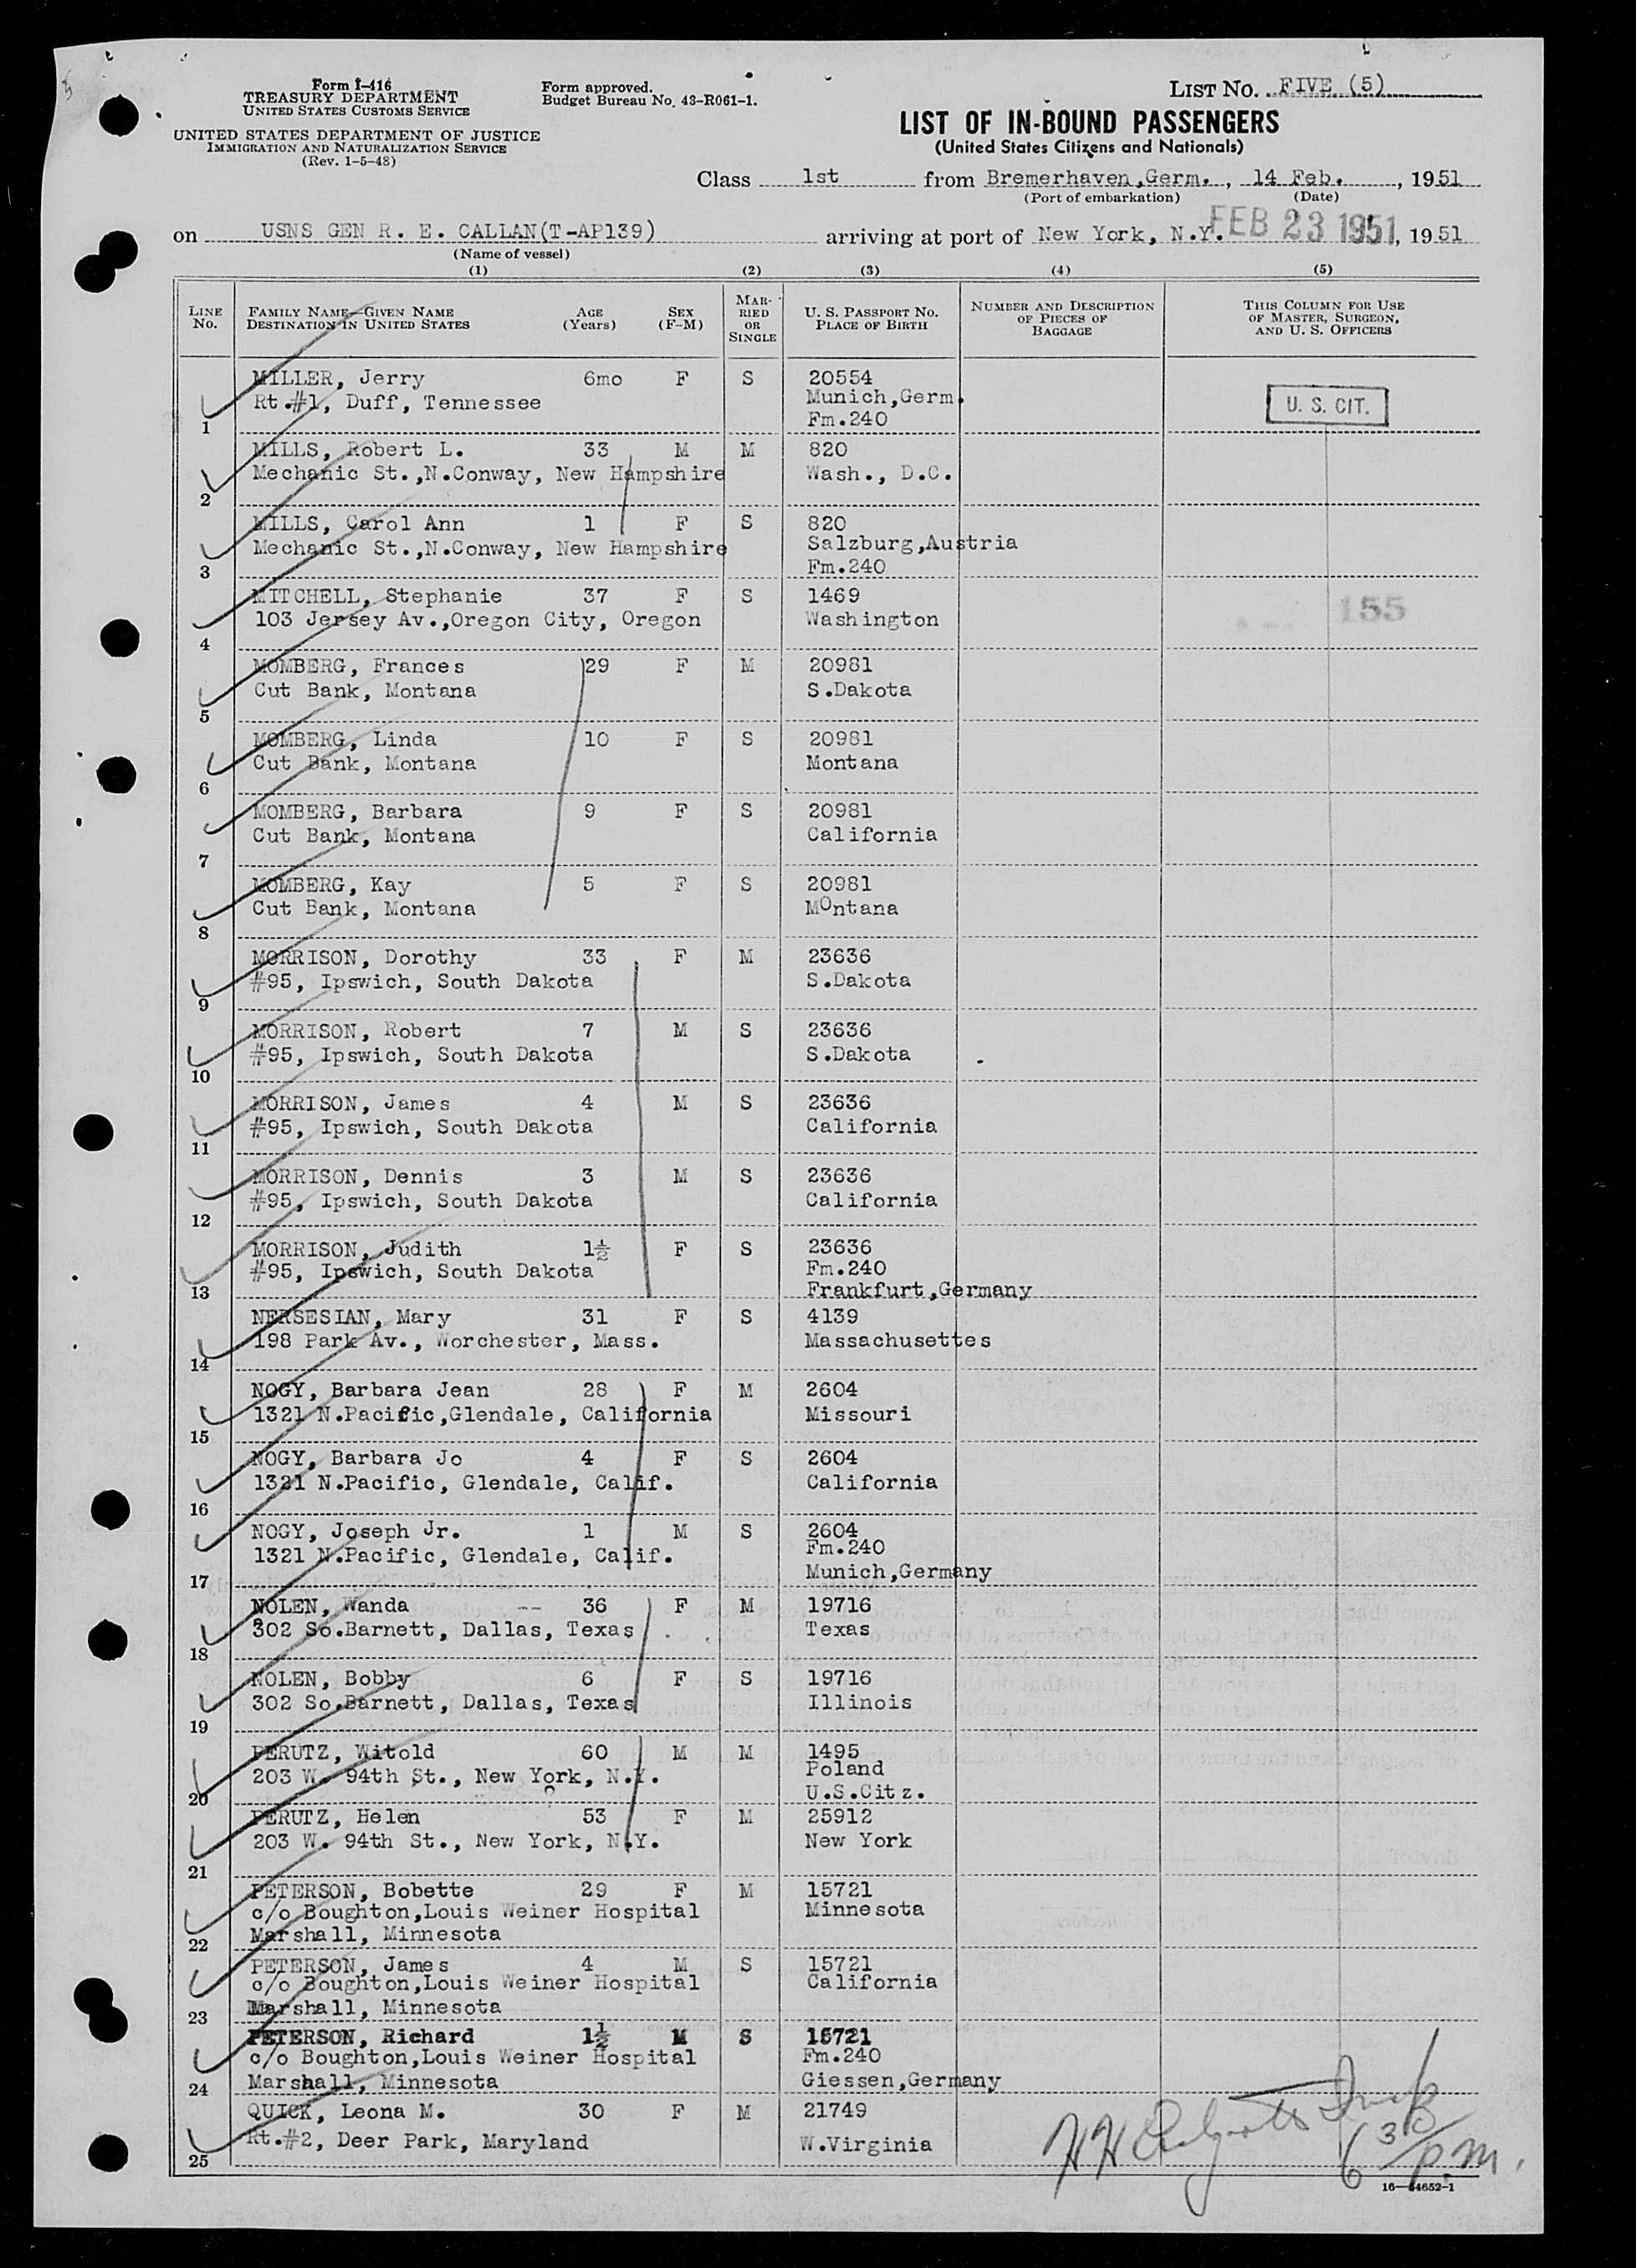 Form I-416
TREASURY DEPARTMENT
UNITED STATES CUSTOMS SERVICE
UNITED STATES DEPARTMENT OF JUSTICE
IMMIGRATION AND NATURALIZATION SERVICE
(Rev. 1-5-48)
Form approved.
Budget Bureau No. 43-R061-1.
LIST NO. FIVE (5)
LIST OF IN-BOUND PASSENGERS
(United States Citizens and Nationals)
Class 1st from Bremerhaven,Germ., 14 Feb., 1951
(Port of embarkation) (Date)
on USNS GEN R. E. CALLAN(T-AP139) arriving at port of New York, N.Y. FEB 23 1951, 1951
(Name of vessel)
(1) (2) (3) (4) (5)
LINE No. FAMILY NAME—GIVEN NAME DESTINATION IN UNITED STATES AGE (Years) SEX (F-M) MARRIED OR SINGLE U. S. PASSPORT NO. PLACE OF BIRTH NUMBER AND DESCRIPTION OF PIECES OF BAGGAGE THIS COLUMN FOR USE OF MASTER, SURGEON, AND U. S. OFFICERS
MILLER, Jerry 6mo F S 20554
Rt.#1, Duff, Tennessee Munich,Germ. U. S. CIT.
1 Fm.240
MILLS, Robert L. 33 M M 820
Mechanic St.,N.Conway, New Hampshire Wash., D.C.
2
MILLS, Carol Ann 1 F S 820
Mechanic St.,N.Conway, New Hampshire Salzburg,Austria
3 Fm.240
MITCHELL, Stephanie 37 F S 1469
103 Jersey Av.,Oregon City, Oregon Washington 155
4
MOMBERG, Frances 29 F M 20981
Cut Bank, Montana S.Dakota
5
MOMBERG, Linda 10 F S 20981
Cut Bank, Montana Montana
6
MOMBERG, Barbara 9 F S 20981
Cut Bank, Montana California
7
MOMBERG, Kay 5 F S 20981
Cut Bank, Montana MOntana
8
MORRISON, Dorothy 33 F M 23636
#95, Ipswich, South Dakota S.Dakota
9
MORRISON, Robert 7 M S 23636
#95, Ipswich, South Dakota S.Dakota
10
MORRISON, James 4 M S 23636
#95, Ipswich, South Dakota California
11
MORRISON, Dennis 3 M S 23636
#95, Ipswich, South Dakota California
12
MORRISON, Judith 1½ F S 23636
#95, Ipswich, South Dakota Fm.240
13 Frankfurt,Germany
NERSESIAN, Mary 31 F S 4139
198 Park Av., Worchester, Mass. Massachusettes
14
NOGY, Barbara Jean 28 F M 2604
1321 N.Pacific,Glendale, California Missouri
15
NOGY, Barbara Jo 4 F S 2604
1321 N.Pacific, Glendale, Calif. California
16
NOGY, Joseph Jr. 1 M S 2604
1321 N.Pacific, Glendale, Calif. Fm.240
17 Munich,Germany
NOLEN, Wanda -- 36 F M 19716
302 So.Barnett, Dallas, Texas Texas
18
NOLEN, Bobby 6 F S 19716
302 So.Barnett, Dallas, Texas Illinois
19
PERUTZ, Witold 60 M M 1495
203 W. 94th St., New York, N.Y. Poland
20 U.S.Citz.
PERUTZ, Helen 53 F M 25912
203 W. 94th St., New York, N.Y. New York
21
PETERSON, Bobette 29 F M 15721
c/o Boughton,Louis Weiner Hospital Minnesota
22 Marshall, Minnesota
PETERSON, James 4 M S 15721
c/o Boughton,Louis Weiner Hospital California
23 Marshall, Minnesota
PETERSON, Richard 1½ M S 15721
c/o Boughton,Louis Weiner Hospital Fm.240
24 Marshall, Minnesota Giessen,Germany
QUICK, Leona M. 30 F M 21749
Rt.#2, Deer Park, Maryland W.Virginia
25
6 30 p.m.
16—54652-1